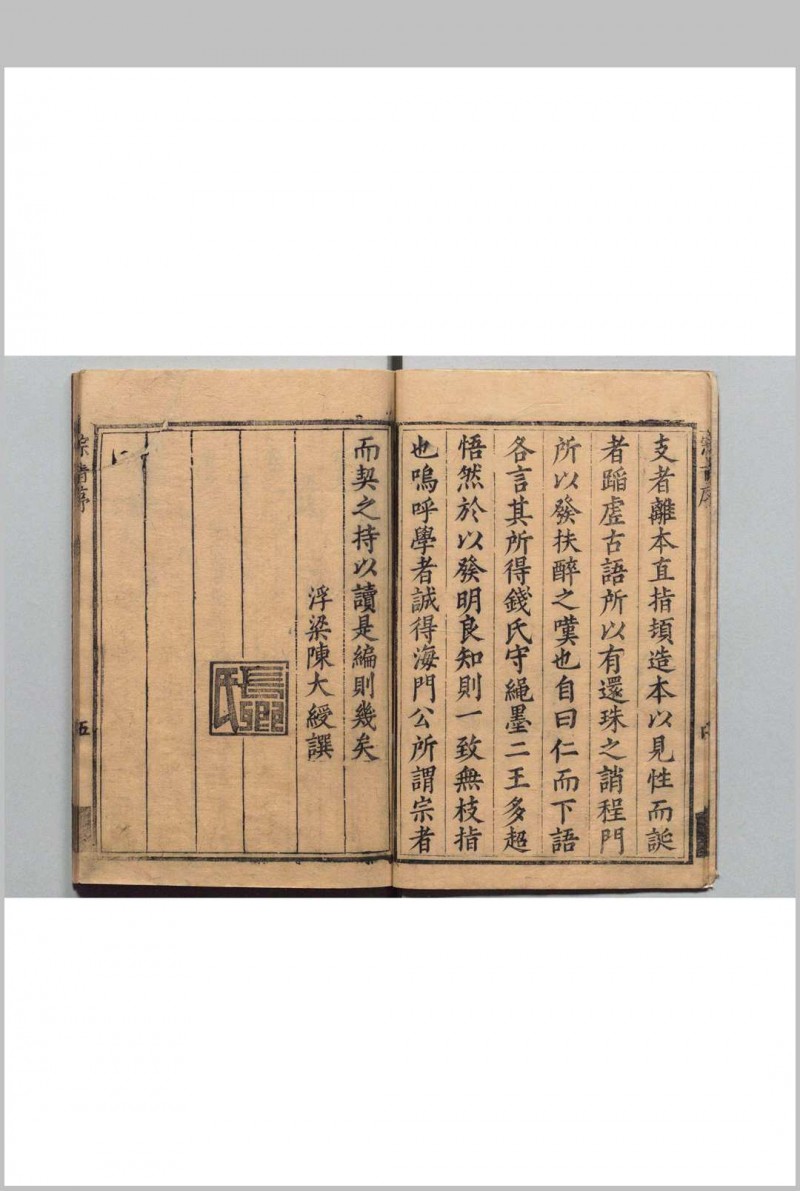 支者離本直指頓造本以見性而誕
者蹈虛古語所以有還珠之誚程門
所以發扶醉之嘆也自曰仁而下語
各言其所得錢氏守繩墨二王多超
悟然於以發明良知則一致無枝指
也嗚呼學者誠得海門公所謂宗者
而契之持以讀是編則幾矣
浮梁陳大綬譔
五